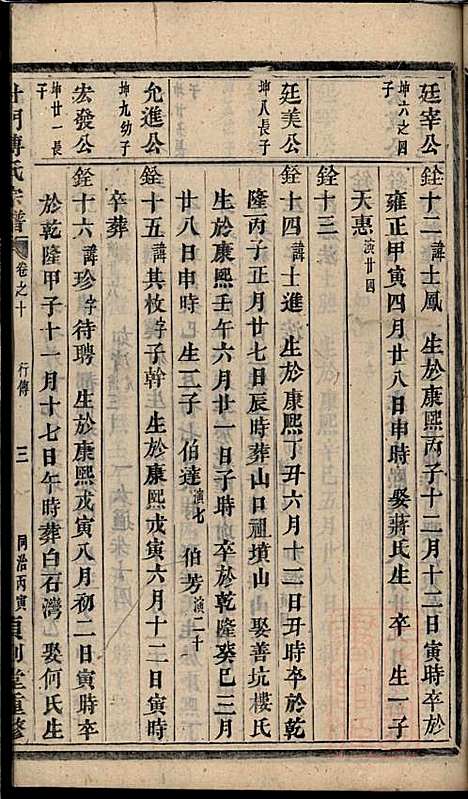 廷宰公
坤六之四
子
銓十二 諱士鳳 生於康熙丙子十二月十二日寅時卒於
雍正甲寅四月廿八日申時 娶蔣氏生 卒 生一子
天惠 演廿四
銓十三
廷美公
坤八長子
銓十四 諱士進 生於康熙丁丑六月十二日丑時卒於乾
隆丙子正月廿七日辰時葬山口祖墳山 娶善坑樓氏
生於康熙壬午六月廿一日子時 卒於乾隆癸巳三月
廿八日申時 生二子 伯達 演七 伯芳 演二十
允進公
坤九幼子
銓十五 諱其枚字子幹生 生於康熙戊寅六月十二日寅時
卒葬
宏發公
坤廿一長
子
銓十六 諱珍字待聘 生於康熙戊寅八月初二日寅時卒
於乾隆甲子十一月十七日午時葬白石灣 娶何氏生
門傅氏宗譜
卷之十
行傳
三
同治丙寅
堂重修